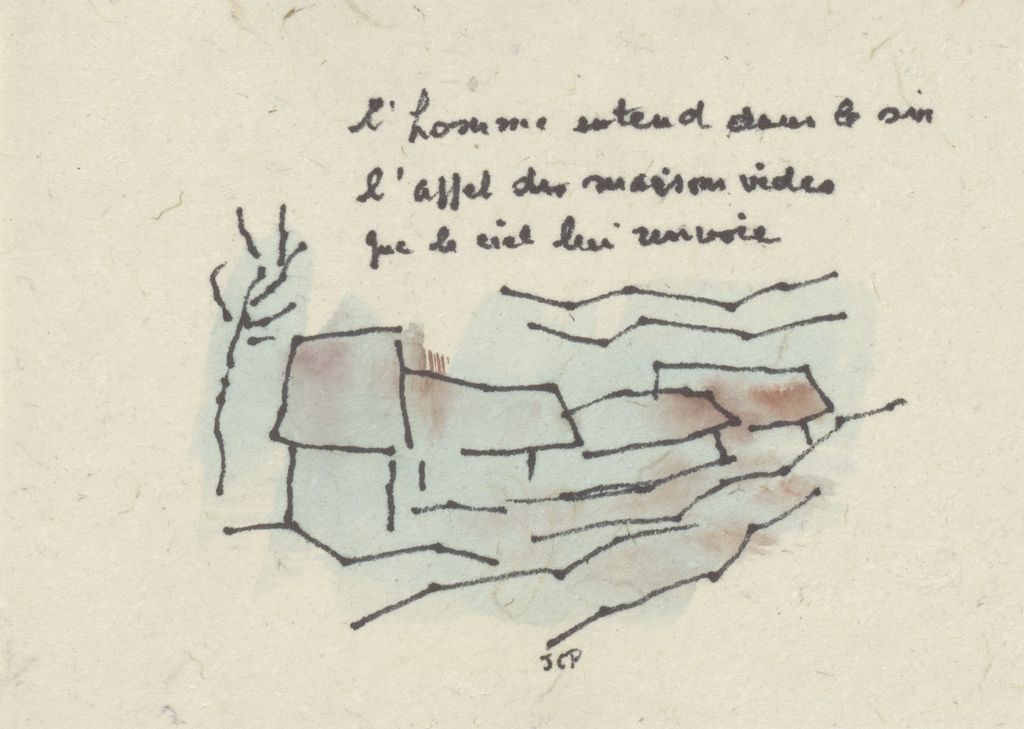 l'homme entend dans le soir
l'appel des maisons vides
que le ciel lui renvoie
JCP